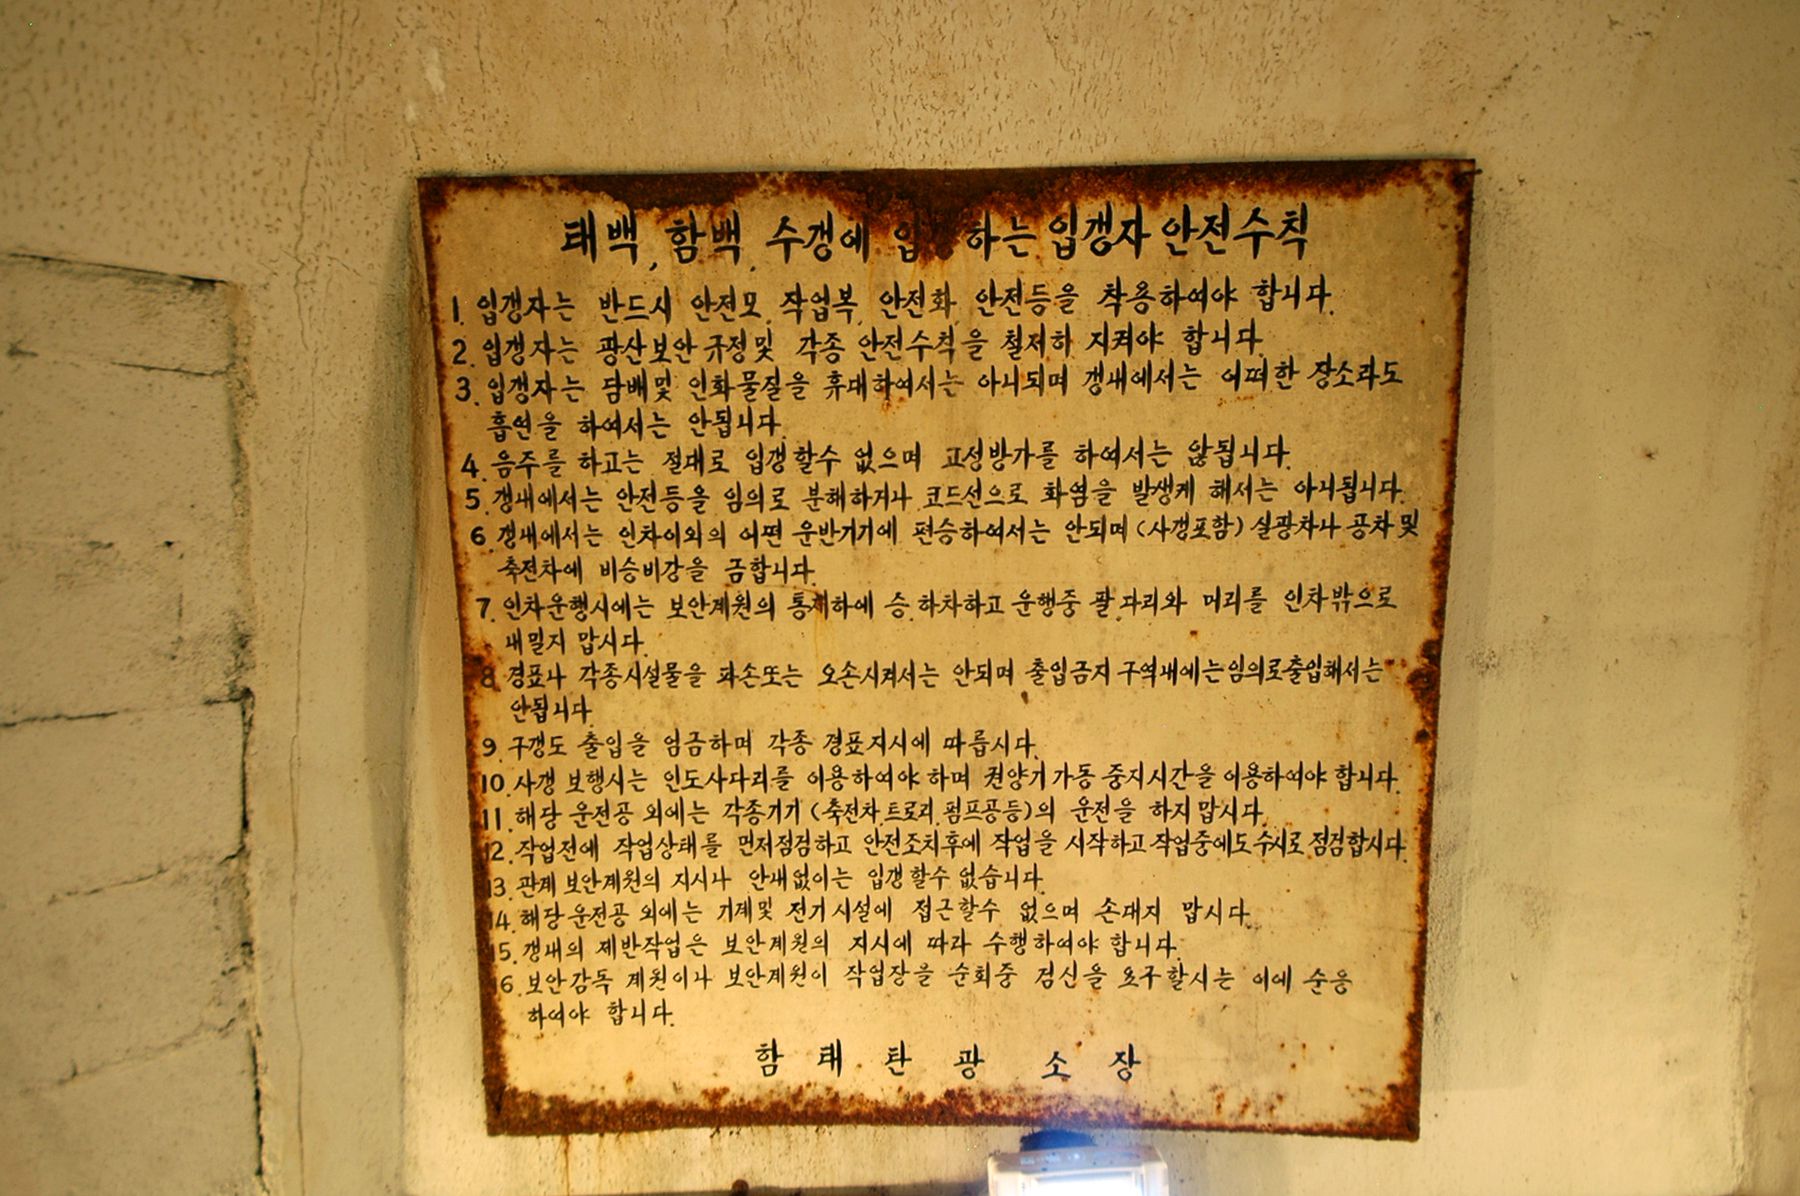 태백, 함백, 수갱에 입갱하는 입갱자 안전수칙
1. 입갱자는 반드시 안전모, 작업복, 안전화, 안전등을 착용하여야 합니다.
2. 입갱자는 광산보안 규정및 각종 안전수칙을 철저하 지켜야 합니다.
3. 입갱자는 담배및 인화물질을 휴대하여서는 아니되며 갱내에서는 어떠한 장소라도
흡연을 하여서는 안됩니다.
4. 음주를 하고는 절대로 입갱할수 없으며 고성방가를 하여서는 않됩니다.
5. 갱내에서는 안전등을 임의로 분해하거나 코드선으로 화염을 발생케 해서는 아니됩니다.
6. 갱내에서는 인차이외의 어떤 운반기기에 편승하여서는 안되며 (사갱포함) 실광차나 공차및
축전차에 비승비강을 금합니다.
7. 인차운행시에는 보안계원의 통제하에 승.하차하고 운행중 팔.다리와 머리를 인차밖으로
내밀지 맙시다.
8. 경표나 각종시설물을 파손또는 오손시켜서는 안되며 출입금지 구역내에는임의로출입해서는
안됩니다.
9. 구갱도 출입을 엄금하며 각종 경표지시에 따릅시다.
10. 사갱 보행시는 인도사다리를 이용하여야 하며 권양기 가동 중지시간을 이용하여야 합니다.
11. 해당 운전공 외에는 각종기기 (축전차.트로리.펌프공등)의 운전을 하지 맙시다.
12. 작업전에 작업상태를 먼저점검하고 안전조치후에 작업을 시작하고 작업중에도수시로 점검합시다.
13. 관계 보안계원의 지시나 안내없이는 입갱할수 없습니다.
14. 해당 운전공 외에는 기계및 전기시설에 접근할수 없으며 손대지 맙시다.
15. 갱내의 제반작업은 보안계원의 지시에 따라 수행하여야 합니다.
16. 보안감독 계원이나 보안계원이 작업장을 순회중 검신을 요구할시는 이에 순응
하여야 합니다.
함태탄광 소장